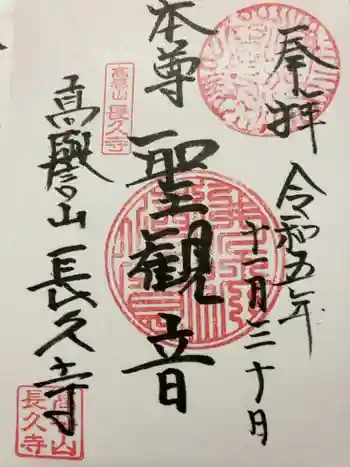 奉拝
令和五年
十一月三十日
本尊
聖観音
高誉山
長久寺
高譽山長久寺
長久寺